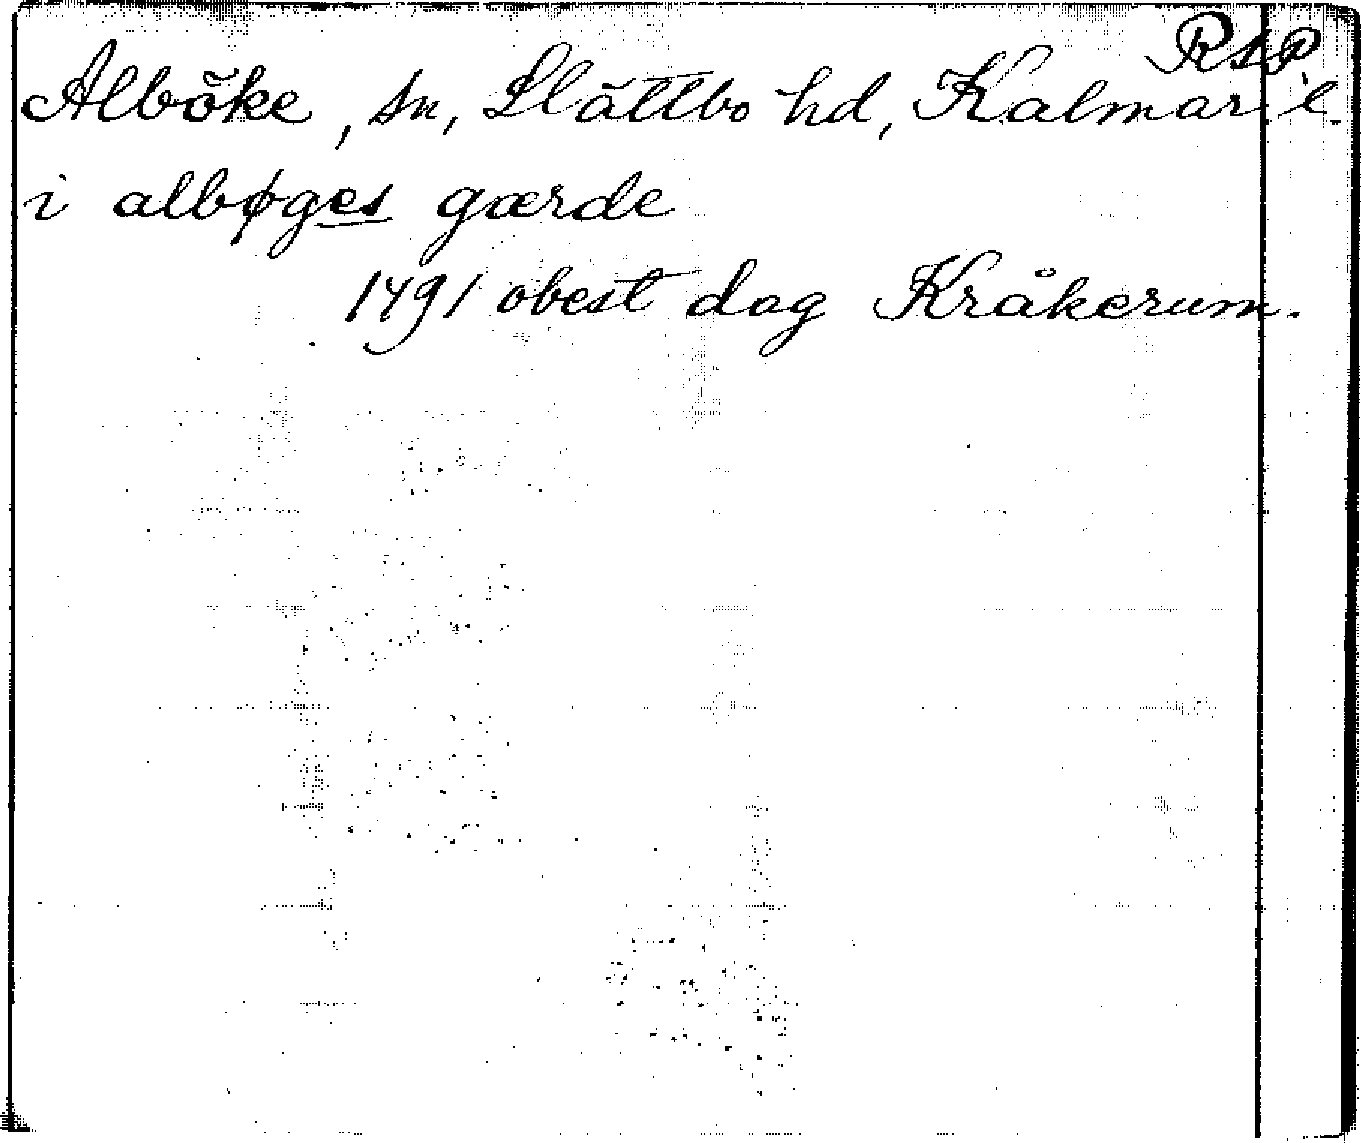 RAP
Alböke, sn, Slättbo hd, Kalmar l.
i albøges gærde
1491 obest dag Kråkerum.